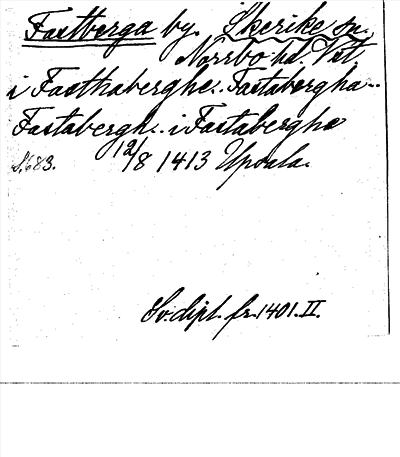 Fastberga by. Skerike sn.
Norrbo hd. Vstl.
i Fasthaberghe.. Fastabergha..
Fastabergh.. i Fastaberghe
S. 683. 12/8 1413 Upsala.
Sv. dipl. fr. 1401. II.